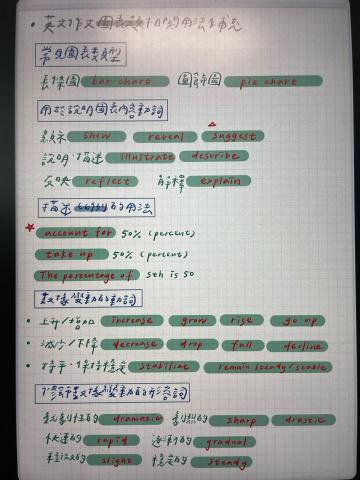 • 英文作文圖表類作的用法補充
常見圖表類型
長條圖 bar chart 圓餅圖 pie chart
用於說明圖表內容動詞
顯示 show reveal suggest
說明/描述 illustrate describe
反映 reflect 解釋 explain
描述 的用法
account for 50% (percent)
take up 50% (percent)
The percentage of sth is 50
數據變動的動詞
• 上升/增加 increase grow rise go up
• 減少/下降 decrease drop fall decline
• 持平/保持穩定 stabilize remain steady/stable
修飾數據變動的形容詞
戲劇性的 dramatic 劇烈的 sharp drastic
快速的 rapid 逐漸的 gradual
輕微的 slight 穩定的 steady